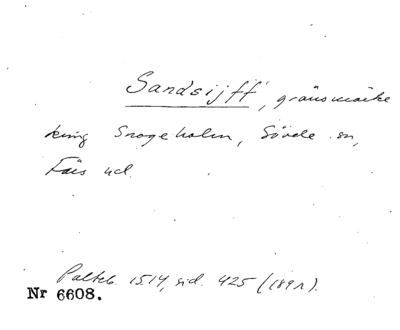 Sandsijff, gränsmärke
kring Snogeholm, Sövde sn,
Färs hd.
Palteb. 1514, sid. 425 (189r).
Nr 6608.